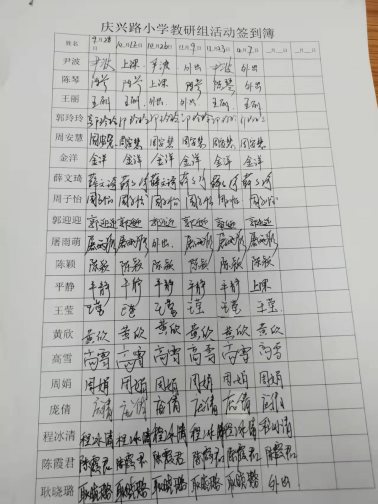 庆兴路小学教研组活动签到簿
姓名 9月28日 10.12日 10.26日 11月9日 11.23日 12月7日 __月__日 __月__日
尹波 尹波 上课 尹波 外出 尹波 外出
陈琴 陈琴 上课 陈琴 陈琴 外出
王丽 王丽 王丽 外出 王丽 王丽 王丽
郭玲玲
周安慧 周安慧 周安慧 周安慧 周安慧 周安慧 周安慧
金洋 金洋 金洋 金洋 金洋 金洋 金洋
薛文琦 薛文琦 薛文琦 薛文琦 薛文琦 薛文琦 薛文琦
周子怡 周子怡 周子怡 周子怡 周子怡 周子怡 周子怡
郭迎迎 郭迎迎 郭迎迎 郭迎迎 郭迎迎 郭迎迎 郭迎迎
屠雨萌 屠雨萌 屠雨萌 外出 屠雨萌 屠雨萌 屠雨萌
陈颖 陈颖 陈颖 陈颖 陈颖 陈颖 陈颖
平静 平静 平静 平静 平静 平静 上课
王莹 王莹 王莹 王莹 王莹 王莹 王莹
黄欣 黄欣 黄欣 黄欣 黄欣 黄欣 黄欣
高雪 高雪 高雪 高雪 高雪 高雪 高雪
周娟 周娟 周娟 周娟 周娟 周娟 周娟
庞倩 庞倩 庞倩 庞倩 庞倩 庞倩 庞倩
程冰清 程冰清 程冰清 程冰清 程冰清 程冰清 程冰清
陈霞君 陈霞君 陈霞君 陈霞君 陈霞君 陈霞君 陈霞君
耿晓璐 耿晓璐 耿晓璐 耿晓璐 耿晓璐 耿晓璐 外出